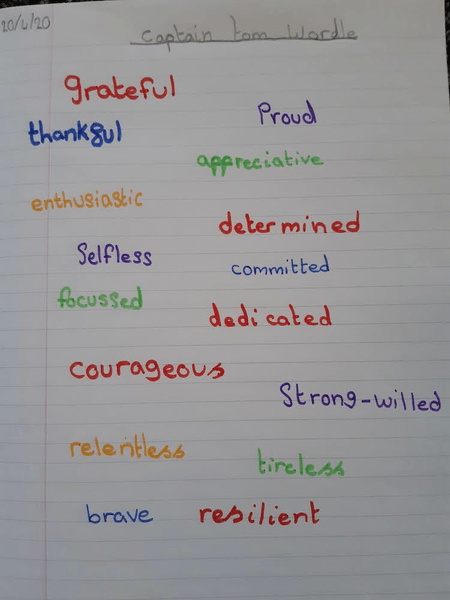 20/4/20
Captain tom Wordle
grateful
Proud
thankful
appreciative
enthusiastic
determined
Selfless
committed
focussed
dedicated
courageous
Strong-willed
relentless
tireless
brave
resilient